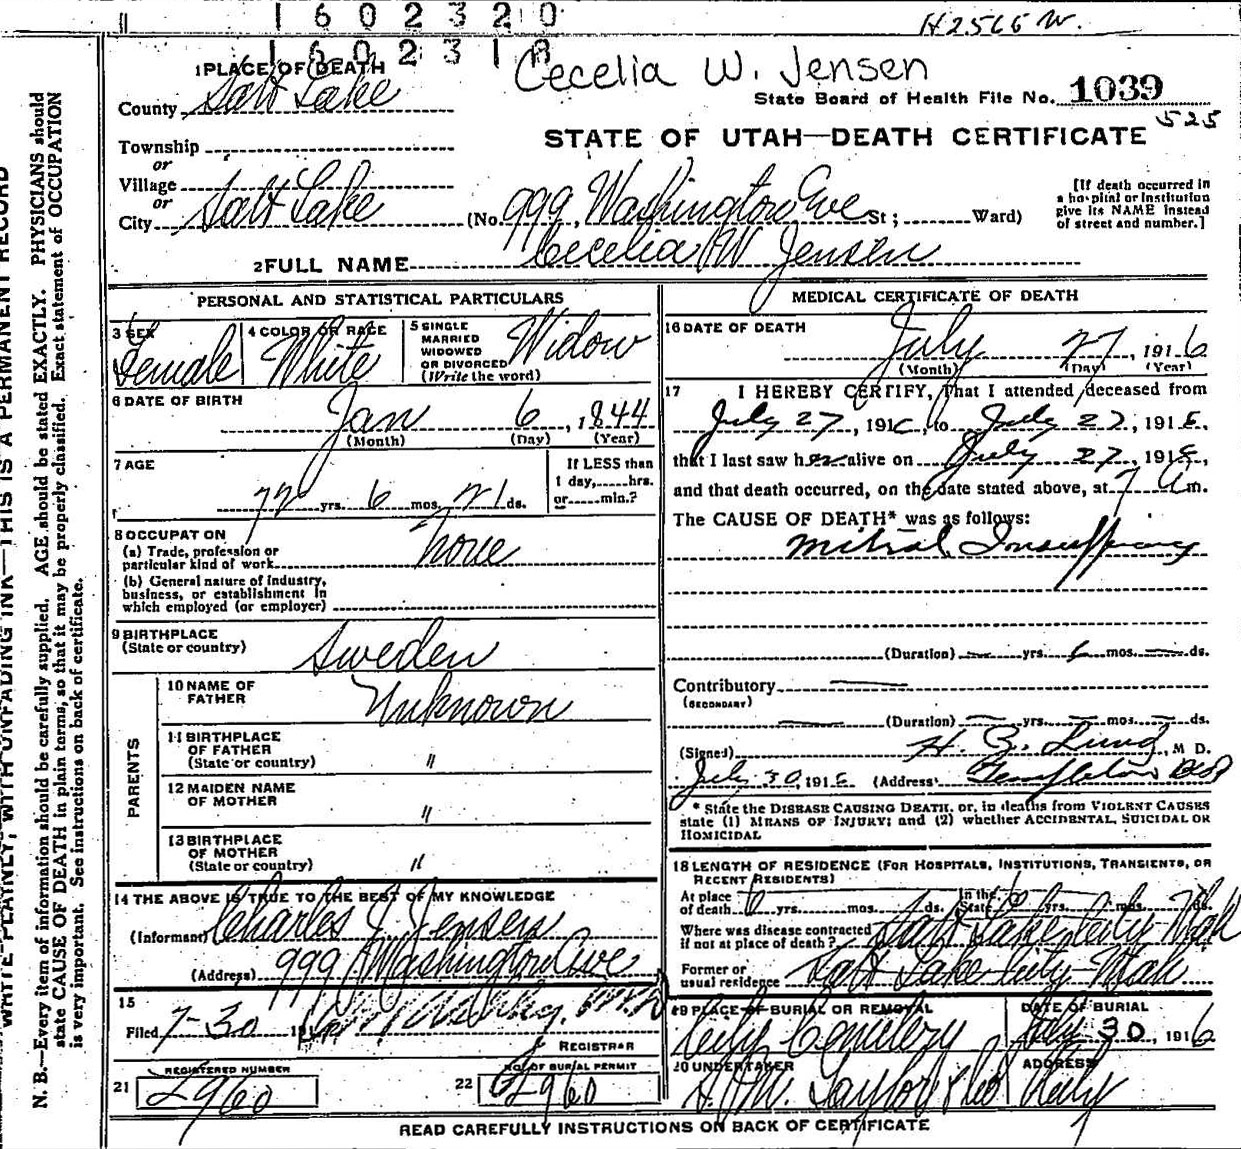 1602320
H2566 W.
160231
Cecelia W. Jensen
1 PLACE OF DEATH
County Salt Lake
State Board of Health File No. 1039
525
STATE OF UTAH—DEATH CERTIFICATE
Township
or
Village
or
City Salt Lake (No. 999, Washington Ave St; Ward)
[If death occurred in
a hospital or institution
give its NAME instead
of street and number.]
2 FULL NAME Cecelia W Jensen
PERSONAL AND STATISTICAL PARTICULARS
3 SEX Female
4 COLOR OR RACE White
5 SINGLE
MARRIED
WIDOWED
OR DIVORCED
(Write the word) Widow
6 DATE OF BIRTH
Jan 6, 1844
(Month) (Day) (Year)
7 AGE
72 yrs. 6 mos. 21 ds.
If LESS than
1 day, hrs.
or min.?
8 OCCUPATION
(a) Trade, profession or
particular kind of work None
(b) General nature of industry,
business, or establishment in
which employed (or employer)
9 BIRTHPLACE
(State or country) Sweden
PARENTS
10 NAME OF
FATHER Unknown
11 BIRTHPLACE
OF FATHER
(State or country) "
12 MAIDEN NAME
OF MOTHER "
13 BIRTHPLACE
OF MOTHER
(State or country) "
14 THE ABOVE IS TRUE TO THE BEST OF MY KNOWLEDGE
(Informant) Charles J Jensen
(Address) 999 Washington Ave
15
Filed 7-30 191
REGISTRAR
21 REGISTERED NUMBER
2960
22 NO. OF BURIAL PERMIT
2960
MEDICAL CERTIFICATE OF DEATH
16 DATE OF DEATH
July 27, 1916
(Month) (Day) (Year)
17 I HEREBY CERTIFY, That I attended deceased from
July 27, 1916, to July 27, 1916,
that I last saw her alive on July 27, 1916,
and that death occurred, on the date stated above, at 7 A m.
The CAUSE OF DEATH* was as follows:
Mitral Insufficiency
(Duration) — yrs. 6 mos. — ds.
Contributory —
(SECONDARY)
(Duration) — yrs. — mos. — ds.
(Signed) H. Z. Lund, M D.
July 30, 1916 (Address) Templeton Bld
* State the DISEASE CAUSING DEATH, or, in deaths from VIOLENT CAUSES
state (1) MEANS OF INJURY; and (2) whether ACCIDENTAL, SUICIDAL OR
HOMICIDAL
18 LENGTH OF RESIDENCE (FOR HOSPITALS, INSTITUTIONS, TRANSIENTS, OR
RECENT RESIDENTS)
At place
of death yrs. mos. ds.
In the
State yrs. mos. ds.
Where was disease contracted
if not at place of death? Salt Lake City Utah
Former or
usual residence Salt Lake City Utah
19 PLACE OF BURIAL OR REMOVAL
City Cemetery
DATE OF BURIAL
July 30, 1916
20 UNDERTAKER
S. M. Taylor & Co
ADDRESS
City
READ CAREFULLY INSTRUCTIONS ON BACK OF CERTIFICATE
WRITE PLAINLY, WITH UNFADING INK—THIS IS A PERMANENT RECORD
N. B.—Every item of information should be carefully supplied. AGE should be stated EXACTLY. PHYSICIANS should
state CAUSE OF DEATH in plain terms, so that it may be properly classified. Exact statement of OCCUPATION
is very important. See instructions on back of certificate.